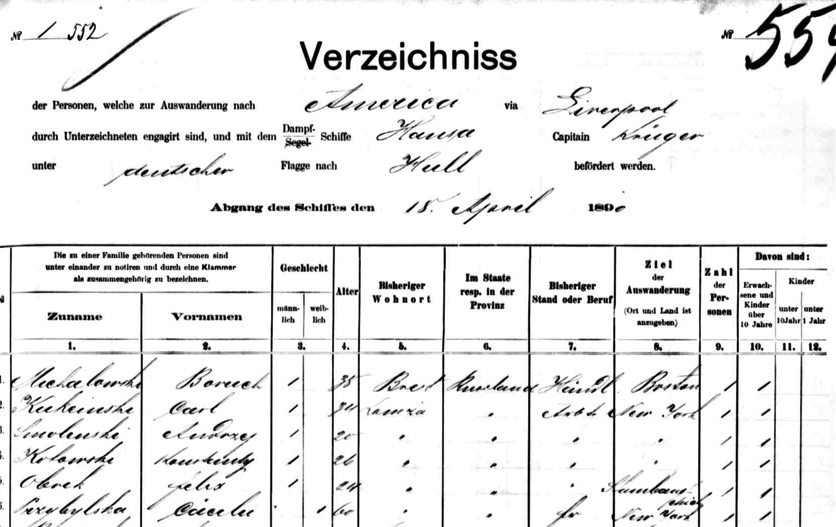 № 1 552
№ 554
Verzeichniss
der Personen, welche zur Auswanderung nach America via Liverpool
durch Unterzeichneten engagirt sind, und mit dem Dampf- Segel- Schiffe Hansa Capitain Krüger
unter deutscher Flagge nach Hull befördert werden.
Abgang des Schiffes den 15. April 1890
Die zu einer Familie gehörenden Personen sind
unter einander zu notiren und durch eine Klammer
als zusammengehörig zu bezeichnen.
Zuname
Vornamen
Geschlecht
männ-
lich
weib-
lich
Alter
Bisheriger
Wohnort
Im Staate
resp. in der
Provinz
Bisheriger
Stand oder Beruf
Ziel
der
Auswanderung
(Ort und Land ist
anzugeben)
Zahl
der
Per-
sonen
Davon sind:
Erwach-
sene und
Kinder
über
10 Jahre
Kinder
unter
10 Jahr
unter
1 Jahr
1. 2. 3. 4. 5. 6. 7. 8. 9. 10. 11. 12.
Michalowski Boruch 1 38 Brest Russland Händl Boston 1 1
Carl 1 34 Lomza " Arbtr New York 1 1
Smolenski Andrzey 1 20 " " " " 1 1
Kotowski Konstanty 1 26 " " " " 1 1
Obrek Felix 1 24 " " " 1 1
Przybylska Cäcilie 1 60 " " fr New York 1 1